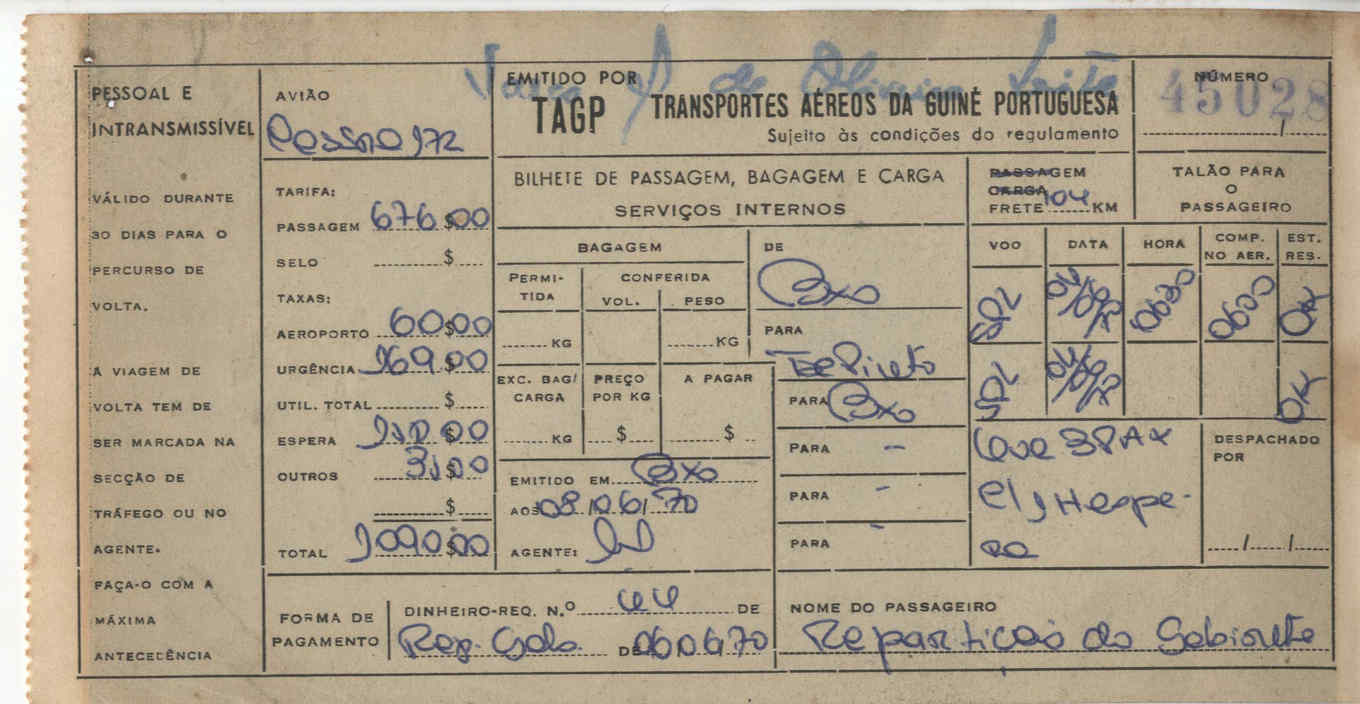 de Oliveira Leite
PESSOAL E
INTRANSMISSÍVEL
VÁLIDO DURANTE
30 DIAS PARA O
PERCURSO DE
VOLTA.
A VIAGEM DE
VOLTA TEM DE
SER MARCADA NA
SECÇÃO DE
TRÁFEGO OU NO
AGENTE.
FAÇA-O COM A
MÁXIMA
ANTECEDÊNCIA
AVIÃO
Cessna 172
TARIFA:
PASSAGEM 676$00
SELO $
TAXAS:
AEROPORTO 60$00
URGÊNCIA 169$00
UTIL. TOTAL $
ESPERA 150$00
OUTROS 35$00
$
TOTAL 1090$00
EMITIDO POR
TAGP TRANSPORTES AÉREOS DA GUINÉ PORTUGUESA
Sujeito às condições do regulamento
NÚMERO
45028
/
BILHETE DE PASSAGEM, BAGAGEM E CARGA
SERVIÇOS INTERNOS
PASSAGEM
CARGA
FRETE 104 KM
TALÃO PARA
O
PASSAGEIRO
BAGAGEM
PERMI-
TIDA
CONFERIDA
VOL. PESO
KG KG
EXC. BAG/
CARGA
PREÇO
POR KG
A PAGAR
KG $ $
EMITIDO EM Bxo
AOS 08/06/70
AGENTE:
DE
Bxo
PARA
PARA Bxo
PARA -
PARA -
PARA -
VOO DATA HORA COMP.
NO AER. EST.
RES.
0630 0600 OK
OK
3PAX
c/1Hespe-
ra
DESPACHADO
POR
/ /
FORMA DE
PAGAMENTO
DINHEIRO-REQ. N.º 44 DE
DE 060670
NOME DO PASSAGEIRO
Repartição do Gabinete